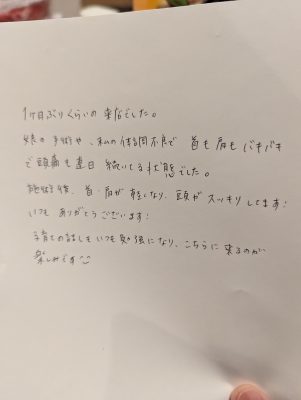 1ヶ月ぶりくらいの来店でした。
娘の手術や、私の体調不良で 首も肩もバキバキ
で頭痛も連日 続いてる状態でした。
施術後、首・肩が軽くなり、頭が スッキリ してます!
いつも ありがとうございます!
子育ての話しもいつも勉強になり、こちらに 来るのが
楽しみです